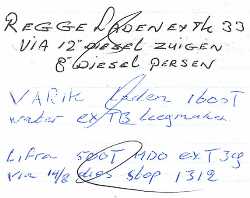 REGGE LADEN EX TK 33
VIA 12" DIESEL ZUIGEN
8" DIESEL PERSEN
VARIK Laden 1600T
water ex TB leegmaken
Lifra 500T MDO ex T39
via 14/8 dies stop 1312